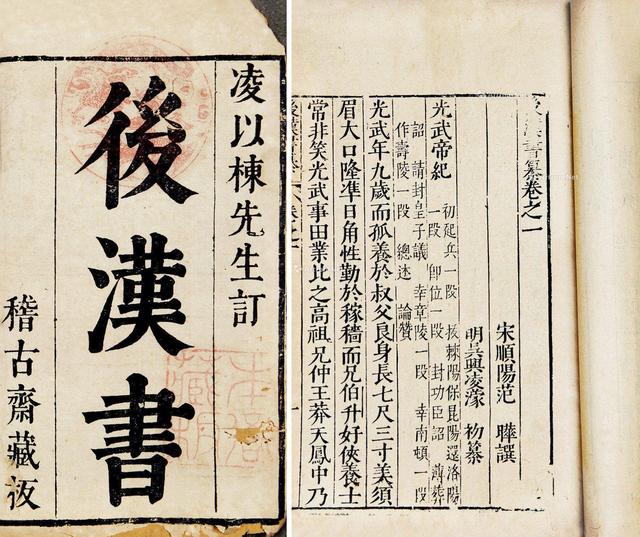 凌以棟先生訂
後漢書
稽古齋藏板
後漢書纂卷之一
宋順陽范　曄撰
明吳興凌濛　初纂
光武帝紀　初起兵一段　拔棘陽保昆陽還洛陽
一段　卽位一段　封功臣詔　薄葬
詔　請封皇子議　幸章陵一段　幸南頓一段
作壽陵一段　總述　論贊
光武年九歲而孤養於叔父良身長七尺三寸美須
眉大口隆準日角性勤於稼穡而兄伯升好俠養士
常非笑光武事田業比之高祖兄仲王莽天鳳中乃